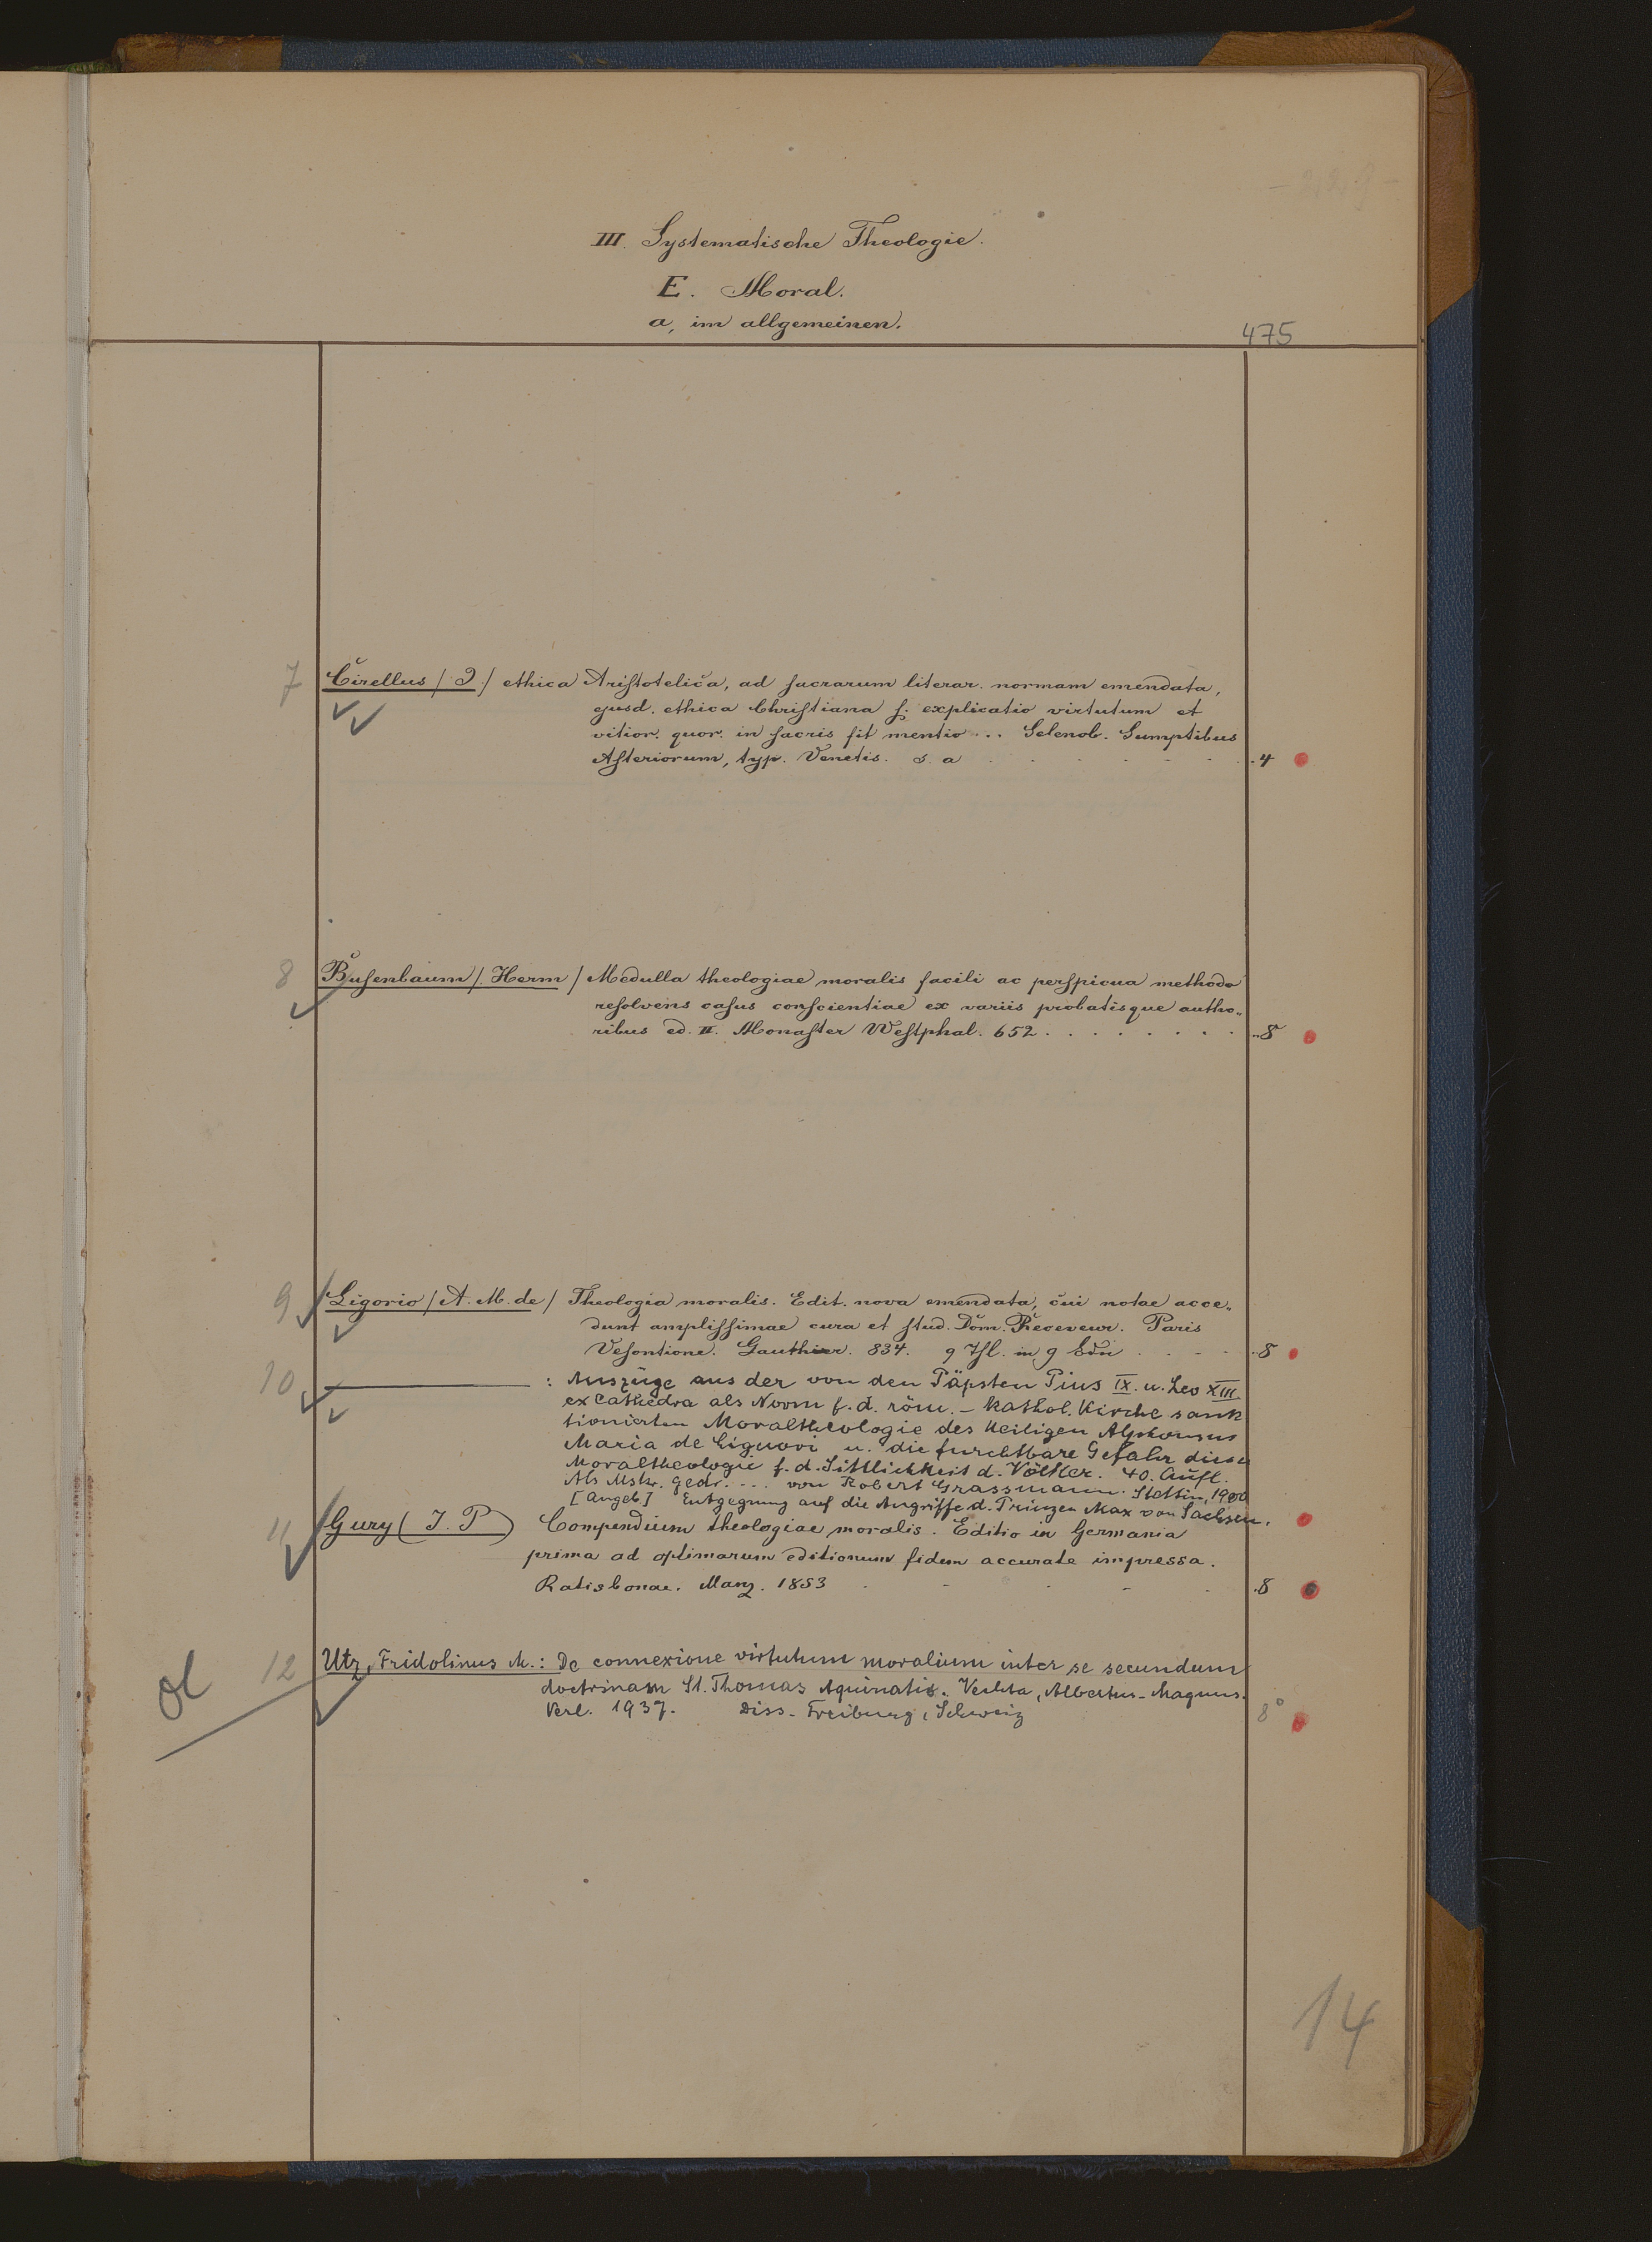 III. Systematische Theologie.
E. Moral.
a, im allgemeinen.
475
7 Cirellus / J / ethica Aristotelica, ad sacrarum literar. normam emendata,
ejusd. ethica Christiana s. explicatio virtutum et
vitior. quor. in sacris fit mentio ... Selenob. Sumptibus
Asteriorum, typ. Venetis. s. a . . . . . . . 4
8 Busenbaum / Herm / Medulla theologiae moralis facili ac perspicua methodo
resolvens casus conscientiae ex variis probatisque autho-
ribus ed. II. Monaster Westphal. 652 . . . . . . . . 8
9 Ligorio / A. M. de / Theologia moralis. Edit. nova emendata, cui notae acce-
dunt amplissimae cura et stud. Dom. Receveur. Paris
Vesontione. Gauthier. 834. 9 Thl. in 9 Bdn . . . . 8
10 ——— : Auszüge aus der von den Päpsten Pius IX. u. Leo XIII.
ex cathedra als Norm f. d. röm. - kathol. Kirche sank
tionierten Moraltheologie des Heiligen Alphonsus
Maria de Liguori u. die furchtbare Gefahr dieser
Moraltheologie f. d. Sittlichkeit d. Völker. 40. Aufl.
Als Mskr. gedr. ... von Robert Grassmann. Stettin, 1900
[Angeb.] Entgegnung auf die Angriffe d. Prinzen Max von Sachsen.
11 Gury (J. P) Compendium theologiae moralis. Editio in Germania
prima ad optimarum editionum fidem accurate impressa.
Ratisbonae. Manz. 1853 . - . - . 8
12 Utz, Fridolinus M.: De connexione virtutum moralium inter se secundum
doctrinam St. Thomas Aquinatis. Vechta, Albertus-Magnus-
Verl. 1937. Diss. Freiburg, Schweiz 8°
14